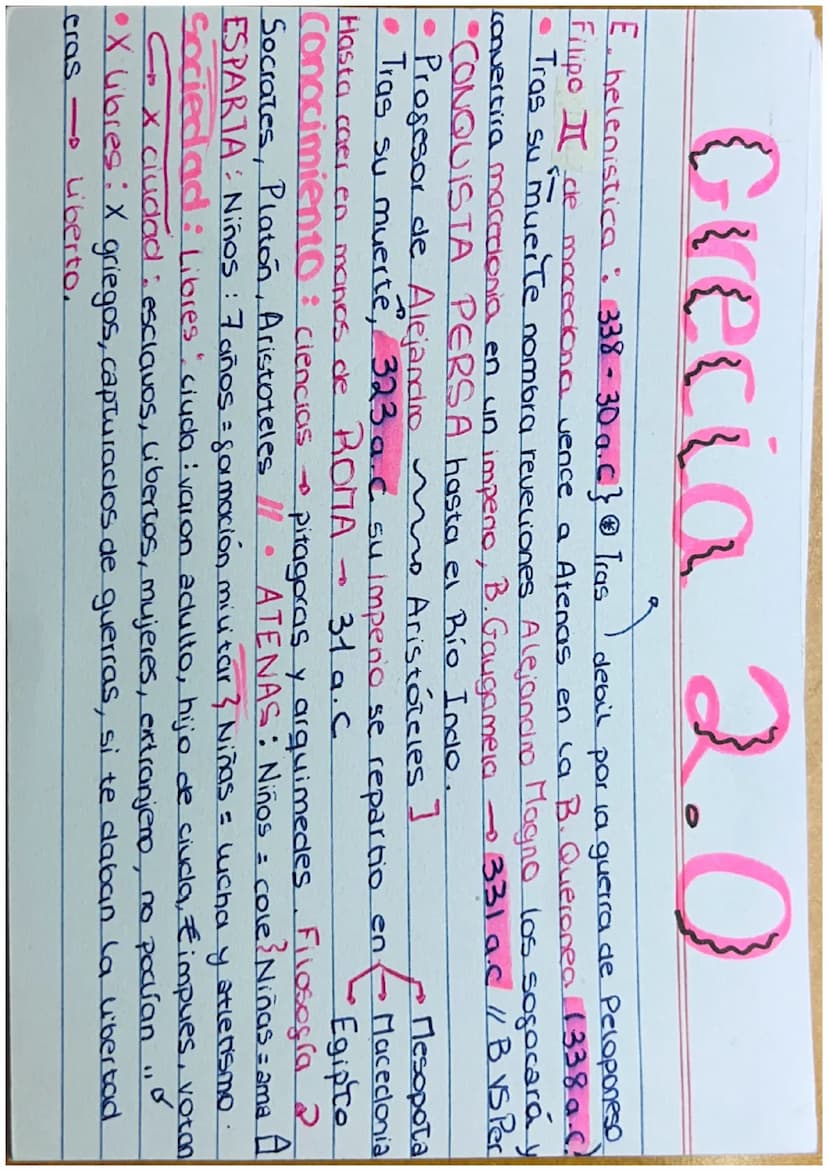 Grecia 2.0
E. helenistica : 338 - 30 a.C } * Tras ) debil por la guerra de Peloponeso
Filipo II de macedona vence a Atenas en la B. Queronea (338 a.C)
• Tras su muerte nombra reveliones Alejandro Magno los sogocará y
convertira macedonia en un imperio, B. Gaugamela → 331 a.C // B VS Per
• CONQUISTA PERSA hasta el Río Indo.
• Profesor de Alejandro Aristóteles ] Mesopota
• Tras su muerte, 323 a.C su Imperio se repartio en Macedonia
Hasta caer en manos de ROMA → 31 a.C Egipto
Conocimiento : ciencias → pitagoras y arquimedes. Filosofía
Socrates, Platón, Aristoteles // • ATENAS : Niños = cole } Niñas = ama
ESPARTA : Niños : 7 años = gomación militar } Niñas = lucha y atletismo.
Sociedad : Libres : ciuda : varon adulto, hijo de ciuda, impues, votan
↳ X ciudad : esclavos, libertos, mujeres, extranjero, no podían "
• X libres : X griegos, capturados de guerras, si te daban la libertad
eras → liberto.